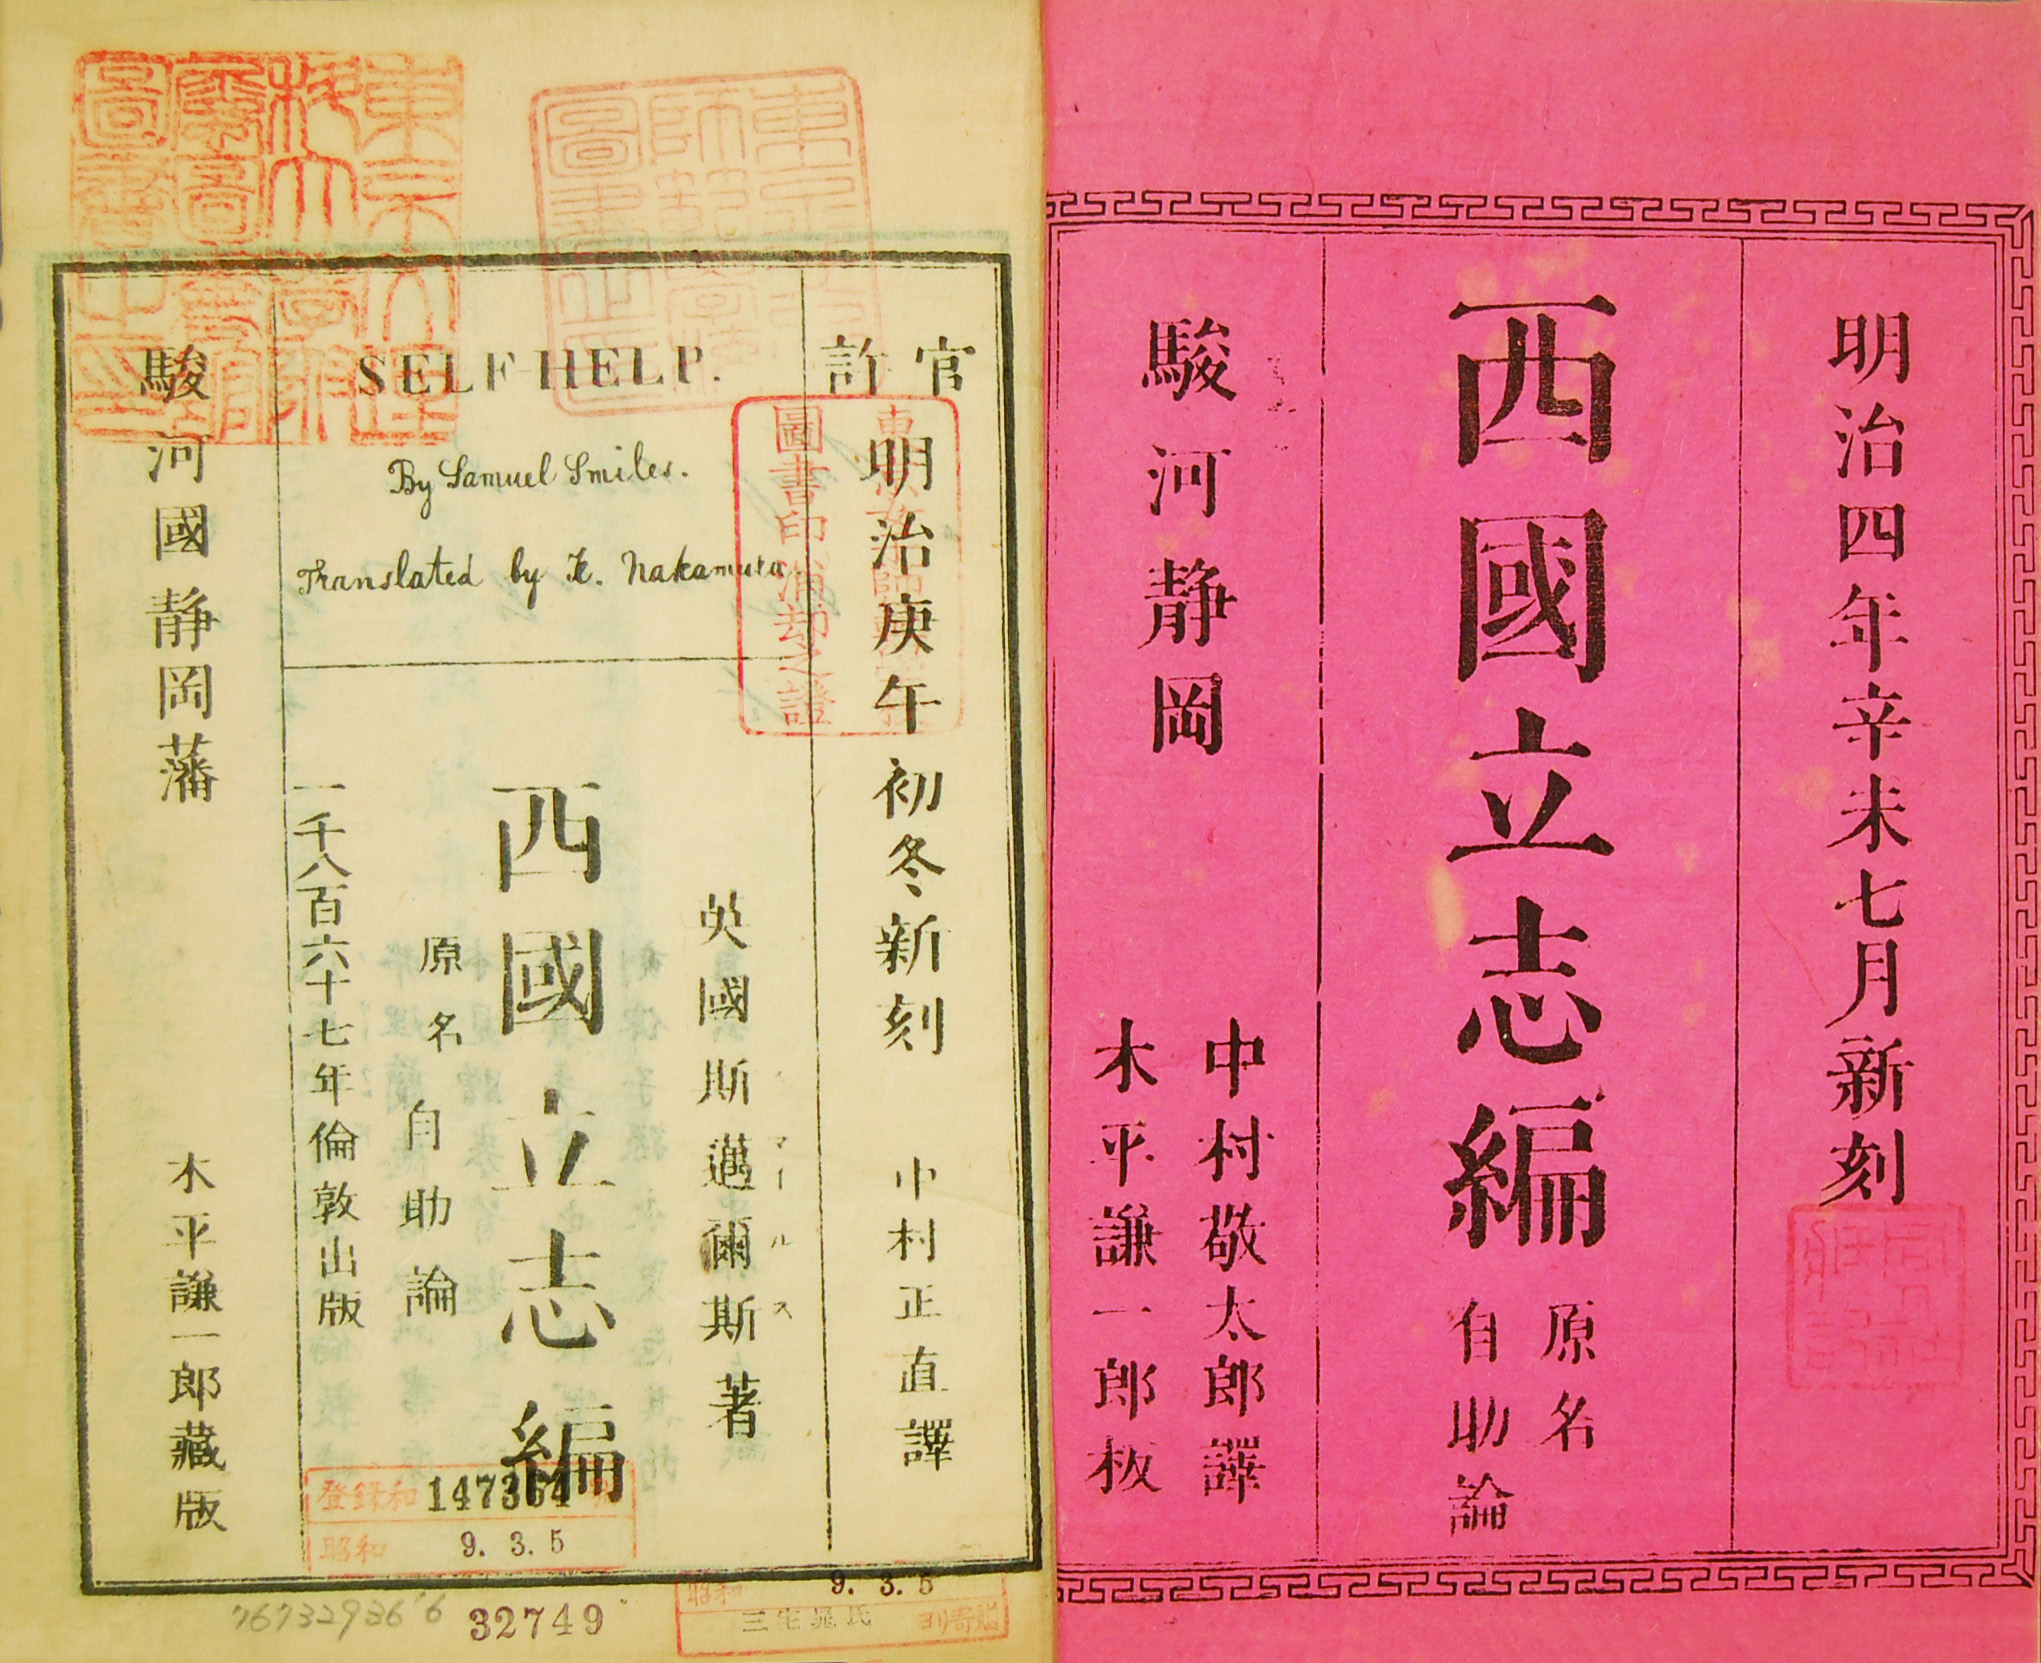 明治四年辛未七月新刻
西國立志編
原名
自助論
駿河静岡
中村敬太郎譯
木平謙一郎板
官許
明治庚午初冬新刻
中村正直譯
SELF-HELP.
By Samuel Smiles.
Translated by K. Nakamura
英國斯邁爾斯著
マールス
西國立志編
原名自助論
一千八百六十七年倫敦出版
駿河國静岡藩
木平謙一郎藏版
圖書印消却之證
登録和 147364
昭和 9. 3. 5
昭和 9. 3. 5
32749